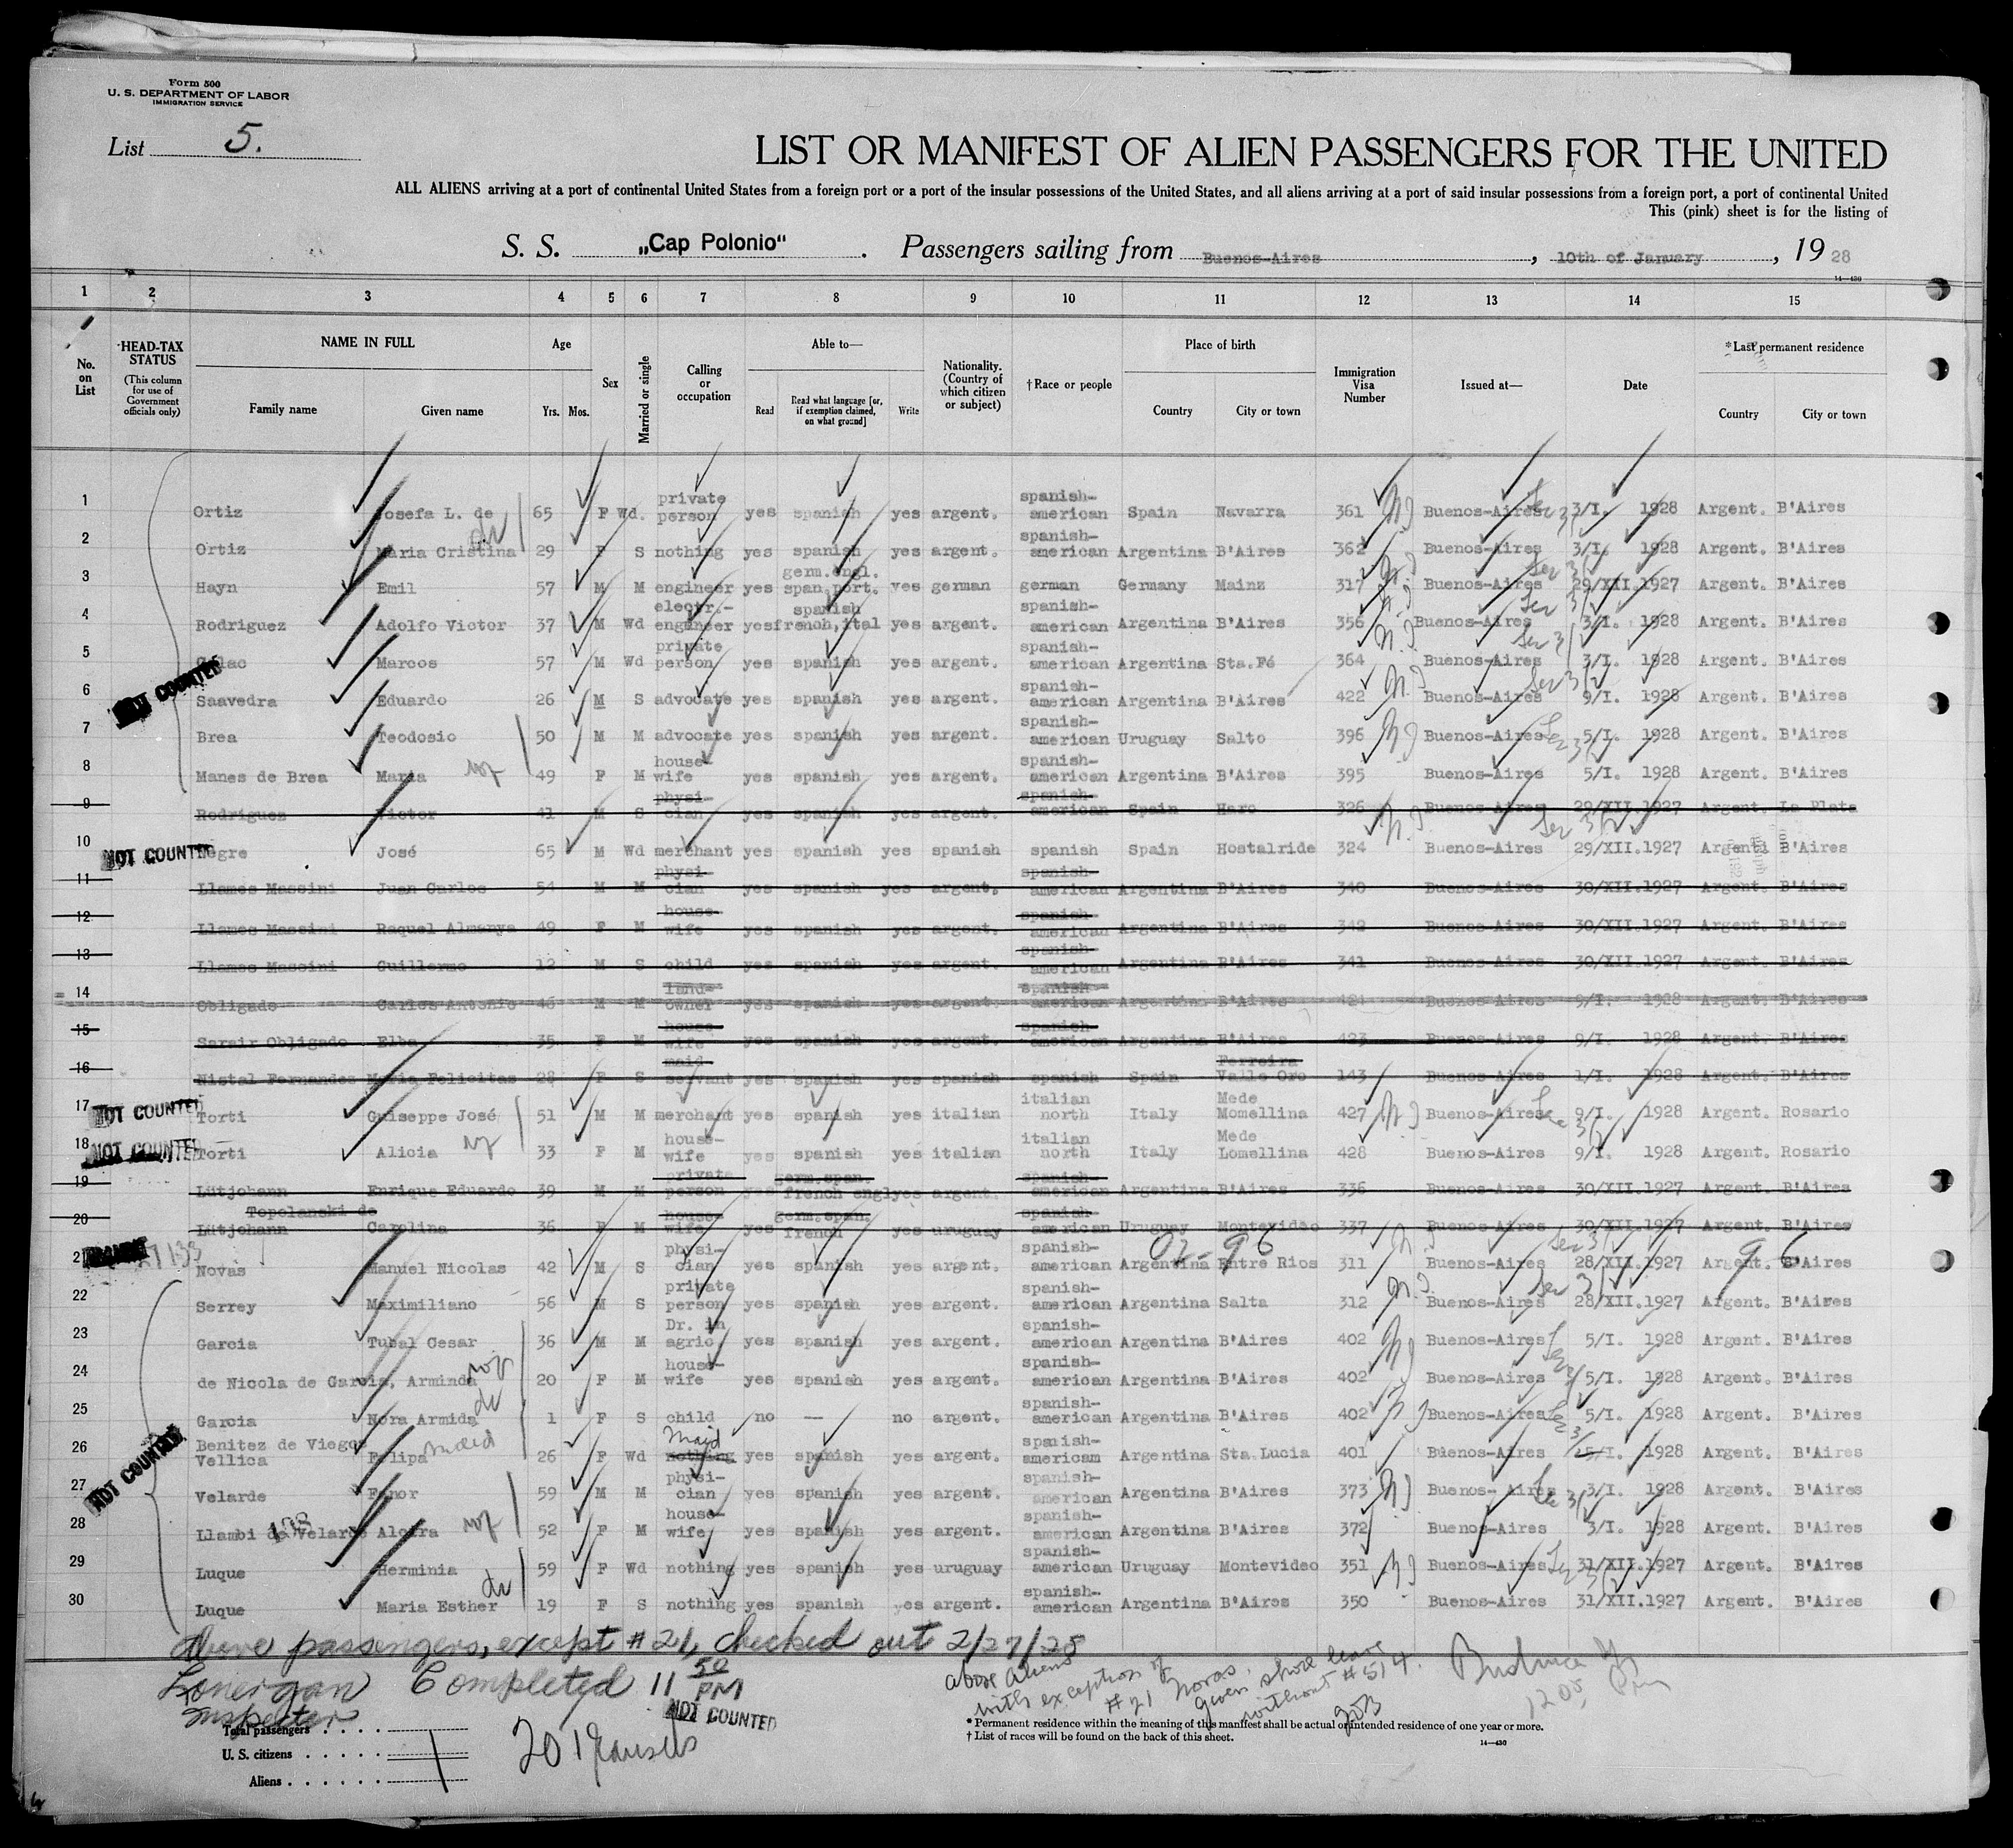 Form 500
U. S. DEPARTMENT OF LABOR
IMMIGRATION SERVICE
List 5.
LIST OR MANIFEST OF ALIEN PASSENGERS FOR THE UNITED
ALL ALIENS arriving at a port of continental United States from a foreign port or a port of the insular possessions of the United States, and all aliens arriving at a port of said insular possessions from a foreign port, a port of continental United
This (pink) sheet is for the listing of
S. S. „Cap Polonio“. Passengers sailing from Buenos-Aires, 10th of January, 1928
14—430
1 2 3 4 5 6 7 8 9 10 11 12 13 14 15
No. on List
HEAD-TAX STATUS
(This column for use of Government officials only)
NAME IN FULL
Family name Given name
Age
Yrs. Mos.
Sex
Married or single
Calling or occupation
Able to—
Read Read what language [or, if exemption claimed, on what ground] Write
Nationality. (Country of which citizen or subject)
†Race or people
Place of birth
Country City or town
Immigration Visa Number
Issued at—
Date
*Last permanent residence
Country City or town
1 Ortiz Josefa L. de 65 F Wd. private person yes spanish yes argent. spanish-american Spain Navarra 361 Buenos-Aires 3/I. 1928 Argent. B'Aires
2 Ortiz Maria Cristina 29 F S nothing yes spanish yes argent. spanish-american Argentina B'Aires 362 Buenos-Aires 3/I. 1928 Argent. B'Aires
3 Hayn Emil 57 M M engineer yes germ.engl. span.port. yes german german Germany Mainz 317 Buenos-Aires 29/XII.1927 Argent. B'Aires
4 Rodriguez Adolfo Victor 37 M Wd electr.-engineer yes spanish french,ital yes argent. spanish-american Argentina B'Aires 356 Buenos-Aires 3/I. 1928 Argent. B'Aires
5 Marcos 57 M Wd private person yes spanish yes argent. spanish-american Argentina Sta.Fé 364 Buenos-Aires 3/I. 1928 Argent. B'Aires
NOT COUNTED
6 Saavedra Eduardo 26 M S advocate yes spanish yes argent. spanish-american Argentina B'Aires 422 Buenos-Aires 9/I. 1928 Argent. B'Aires
7 Brea Teodosio 50 M M advocate yes spanish yes argent. spanish-american Uruguay Salto 396 Buenos-Aires 5/I. 1928 Argent. B'Aires
8 Manes de Brea Maria 49 F M house-wife yes spanish yes argent. spanish-american Argentina B'Aires 395 Buenos-Aires 5/I. 1928 Argent. B'Aires
9 Rodriguez Victor 41 M S physi-cian yes spanish yes argent. spanish-american Spain Haro 326 Buenos-Aires 29/XII.1927 Argent. La Plata
10 NOT COUNTED Negre José 65 M Wd merchant yes spanish yes spanish spanish Spain Hostalride 324 Buenos-Aires 29/XII.1927 Argent. B'Aires
11 Llames Massini Juan Carlos 54 M M physi-cian yes spanish yes argent. spanish-american Argentina B'Aires 340 Buenos-Aires 30/XII.1927 Argent. B'Aires
12 Llames Massini Raquel Almanya 49 F M house-wife yes spanish yes argent. spanish-american Argentina B'Aires 342 Buenos-Aires 30/XII.1927 Argent. B'Aires
13 Llames Massini Guillermo 12 M S child yes spanish yes argent. spanish-american Argentina B'Aires 341 Buenos-Aires 30/XII.1927 Argent. B'Aires
14 Obligado Carlos Antonio 46 M M land-owner yes spanish yes argent. spanish-american Argentina B'Aires 424 Buenos-Aires 9/I. 1928 Argent. B'Aires
15 Sarair Obligado Elba 35 F M house-wife yes spanish yes argent. spanish-american Argentina B'Aires 423 Buenos-Aires 9/I. 1928 Argent. B'Aires
16 Nistal Fernandez Maria Felicitas 28 F S maid-servant yes spanish yes spanish spanish Spain Ferreira Valle Oro 143 Buenos-Aires 1/I. 1928 Argent. B'Aires
17 NOT COUNTED Torti Guiseppe José 51 M M merchant yes spanish yes italian italian north Italy Mede Momellina 427 Buenos-Aires 9/I. 1928 Argent. Rosario
18 NOT COUNTED Torti Alicia 33 F M house-wife yes spanish yes italian italian north Italy Mede Lomellina 428 Buenos-Aires 9/I. 1928 Argent. Rosario
19 Lütjohann Enrique Eduardo 39 M M private person yes germ.span. french engl yes argent. spanish-american Argentina B'Aires 336 Buenos-Aires 30/XII.1927 Argent. B'Aires
20 Topolanski de Lütjohann Carolina 36 F M house-wife yes germ.span. french yes uruguay spanish-american Uruguay Montevideo 337 Buenos-Aires 30/XII.1927 Argent. B'Aires
21 Novas Manuel Nicolas 42 M S physi-cian yes spanish yes argent. spanish-american Argentina Entre Rios 311 Buenos-Aires 28/XII.1927 Argent. B'Aires
22 Serrey Maximiliano 56 M S private person yes spanish yes argent. spanish-american Argentina Salta 312 Buenos-Aires 28/XII.1927 Argent. B'Aires
23 Garcia Tubal Cesar 36 M M Dr. in agric. yes spanish yes argent. spanish-american Argentina B'Aires 402 Buenos-Aires 5/I. 1928 Argent. B'Aires
24 de Nicola de Garcia, Arminda 20 F M house-wife yes spanish yes argent. spanish-american Argentina B'Aires 402 Buenos-Aires 5/I. 1928 Argent. B'Aires
25 Garcia Nora Armida 1 F S child no — no argent. spanish-american Argentina B'Aires 402 Buenos-Aires 5/I. 1928 Argent. B'Aires
26 Benitez de Viego Vellica Felipa 26 F Wd nothing Maid yes spanish yes argent. spanish-americam Argentina Sta.Lucia 401 Buenos-Aires 1928 Argent. B'Aires
NOT COUNTED
27 Velarde Fanor 59 M M physi-cian yes spanish yes argent. spanish-american Argentina B'Aires 373 Buenos- Aires 3/I. 1928 Argent. B'Aires
28 Llambi de Velarde Alcira 52 F M house-wife yes spanish yes argent. spanish-american Argentina B'Aires 372 Buenos-Aires 3/I. 1928 Argent. B'Aires
29 Luque Herminia 59 F Wd nothing yes spanish yes uruguay spanish-american Uruguay Montevideo 351 Buenos-Aires 31/XII.1927 Argent. B'Aires
30 Luque Maria Esther 19 F S nothing yes spanish yes argent. spanish-american Argentina B'Aires 350 Buenos-Aires 31/XII.1927 Argent. B'Aires
Above passengers, except #21, checked out 2/27/28
Lonergan Completed 11 50 PM
Inspector
NOT COUNTED
above aliens with exception of #21 Novas, given shore leave without #514.
Total passengers
U. S. citizens
Aliens
20
* Permanent residence within the meaning of this manifest shall be actual or intended residence of one year or more.
† List of races will be found on the back of this sheet.
14—430